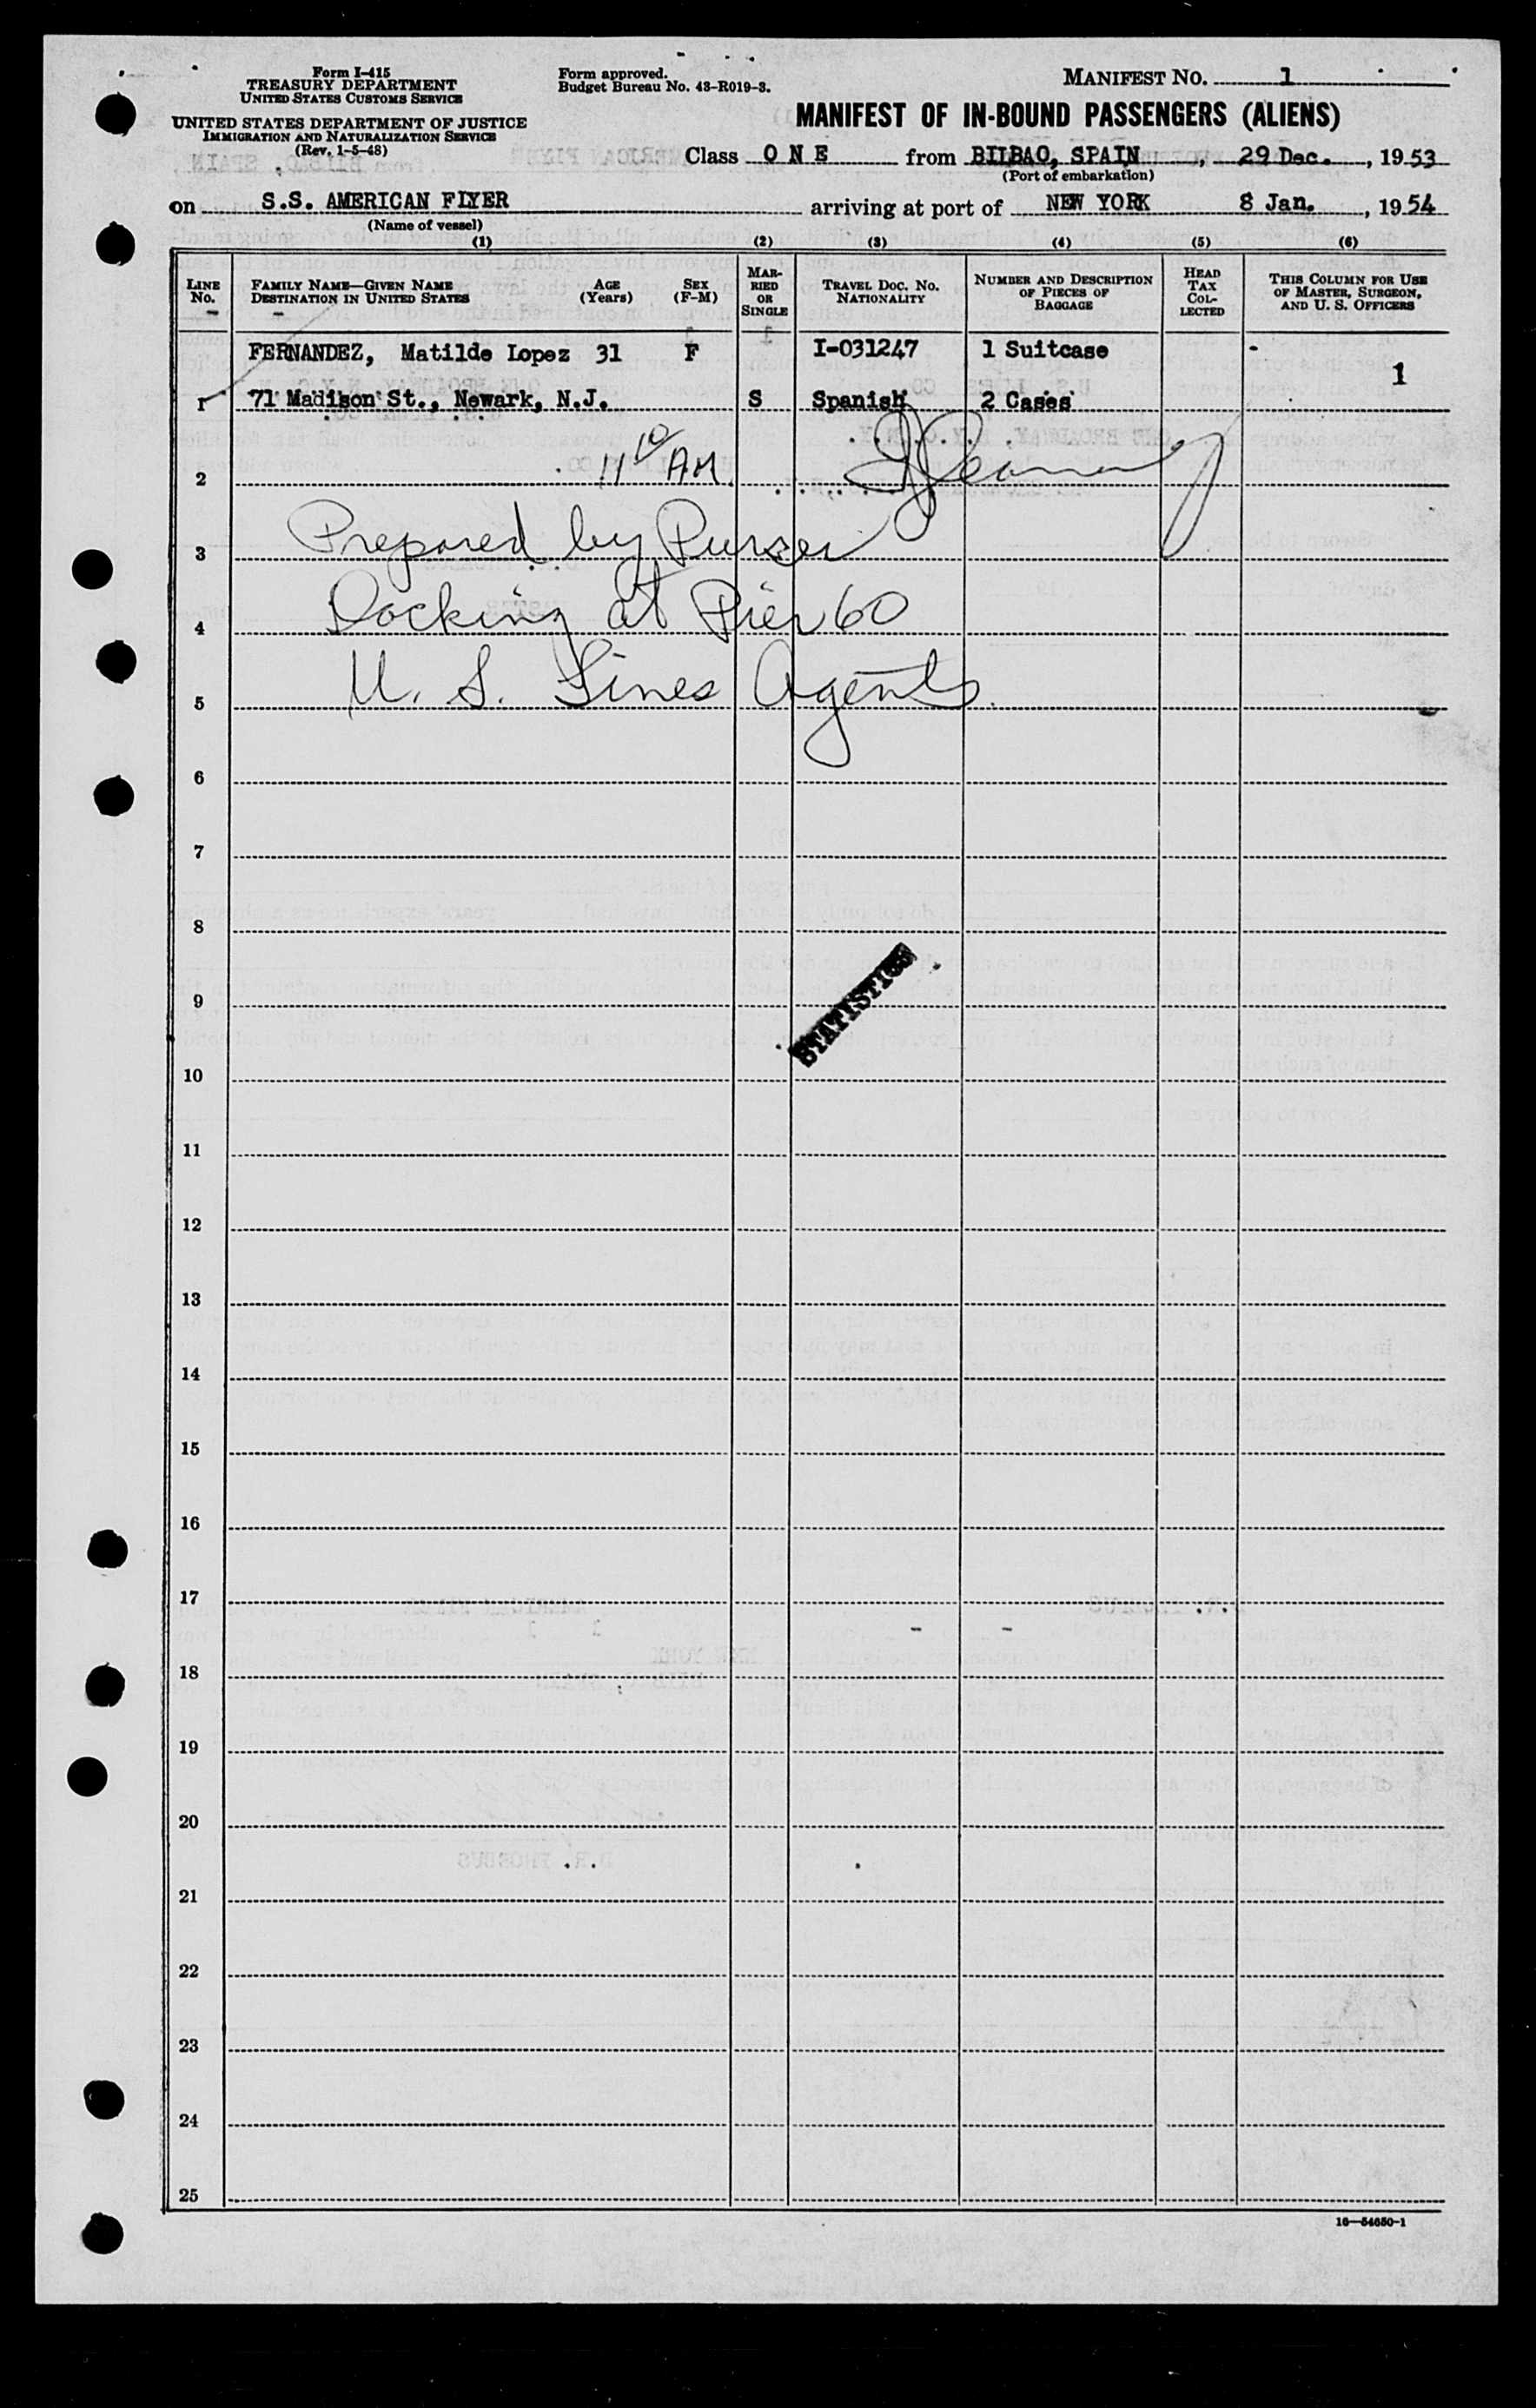 Form I-415
TREASURY DEPARTMENT
UNITED STATES CUSTOMS SERVICE
UNITED STATES DEPARTMENT OF JUSTICE
IMMIGRATION AND NATURALIZATION SERVICE
(Rev. 1-5-48)
Form approved.
Budget Bureau No. 43-R019-3.
MANIFEST NO. 1
MANIFEST OF IN-BOUND PASSENGERS (ALIENS)
Class O N E from BILBAO, SPAIN, 29 Dec., 1953
(Port of embarkation)
on S.S. AMERICAN FLYER arriving at port of NEW YORK 8 Jan., 1954
(Name of vessel)
(1) (2) (3) (4) (5) (6)
LINE No.
FAMILY NAME—GIVEN NAME
DESTINATION IN UNITED STATES
AGE (Years)
SEX (F-M)
MAR-
RIED
OR
SINGLE
TRAVEL DOC. NO.
NATIONALITY
NUMBER AND DESCRIPTION
OF PIECES OF
BAGGAGE
HEAD
TAX
COL-
LECTED
THIS COLUMN FOR USE
OF MASTER, SURGEON,
AND U. S. OFFICERS
FERNANDEZ, Matilde Lopez 31 F I-031247 1 Suitcase
1
1 71 Madison St., Newark, N.J. S Spanish 2 Cases
11 10 AM
2
Prepared by Purser
3
Docking at Pier 60
4
U. S. Lines Agents.
5
6
7
8
STATISTICS
9
10
11
12
13
14
15
16
17
18
19
20
21
22
23
24
25
16—54650-1